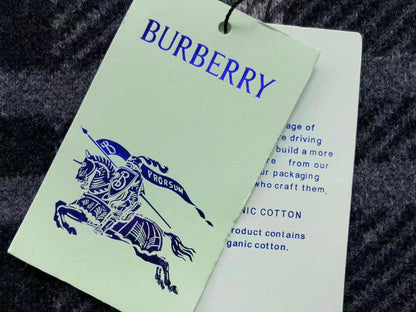 BURBERRY
PRORSUM
age of
driving
build a more
from our
packaging
who craft them.
COTTON
product contains
organic cotton.